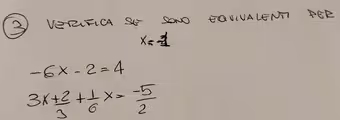 ③ VERIFICA SE SONO EQUIVALENTI PER
x=
-6x-2=4
3x+2/3+1/6x=-5/2